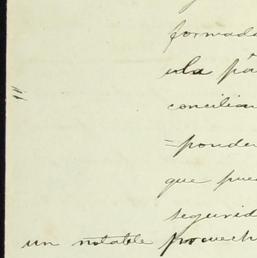 formada
a la pa
concilian
=ponder
que pue
segurid
un notable provech